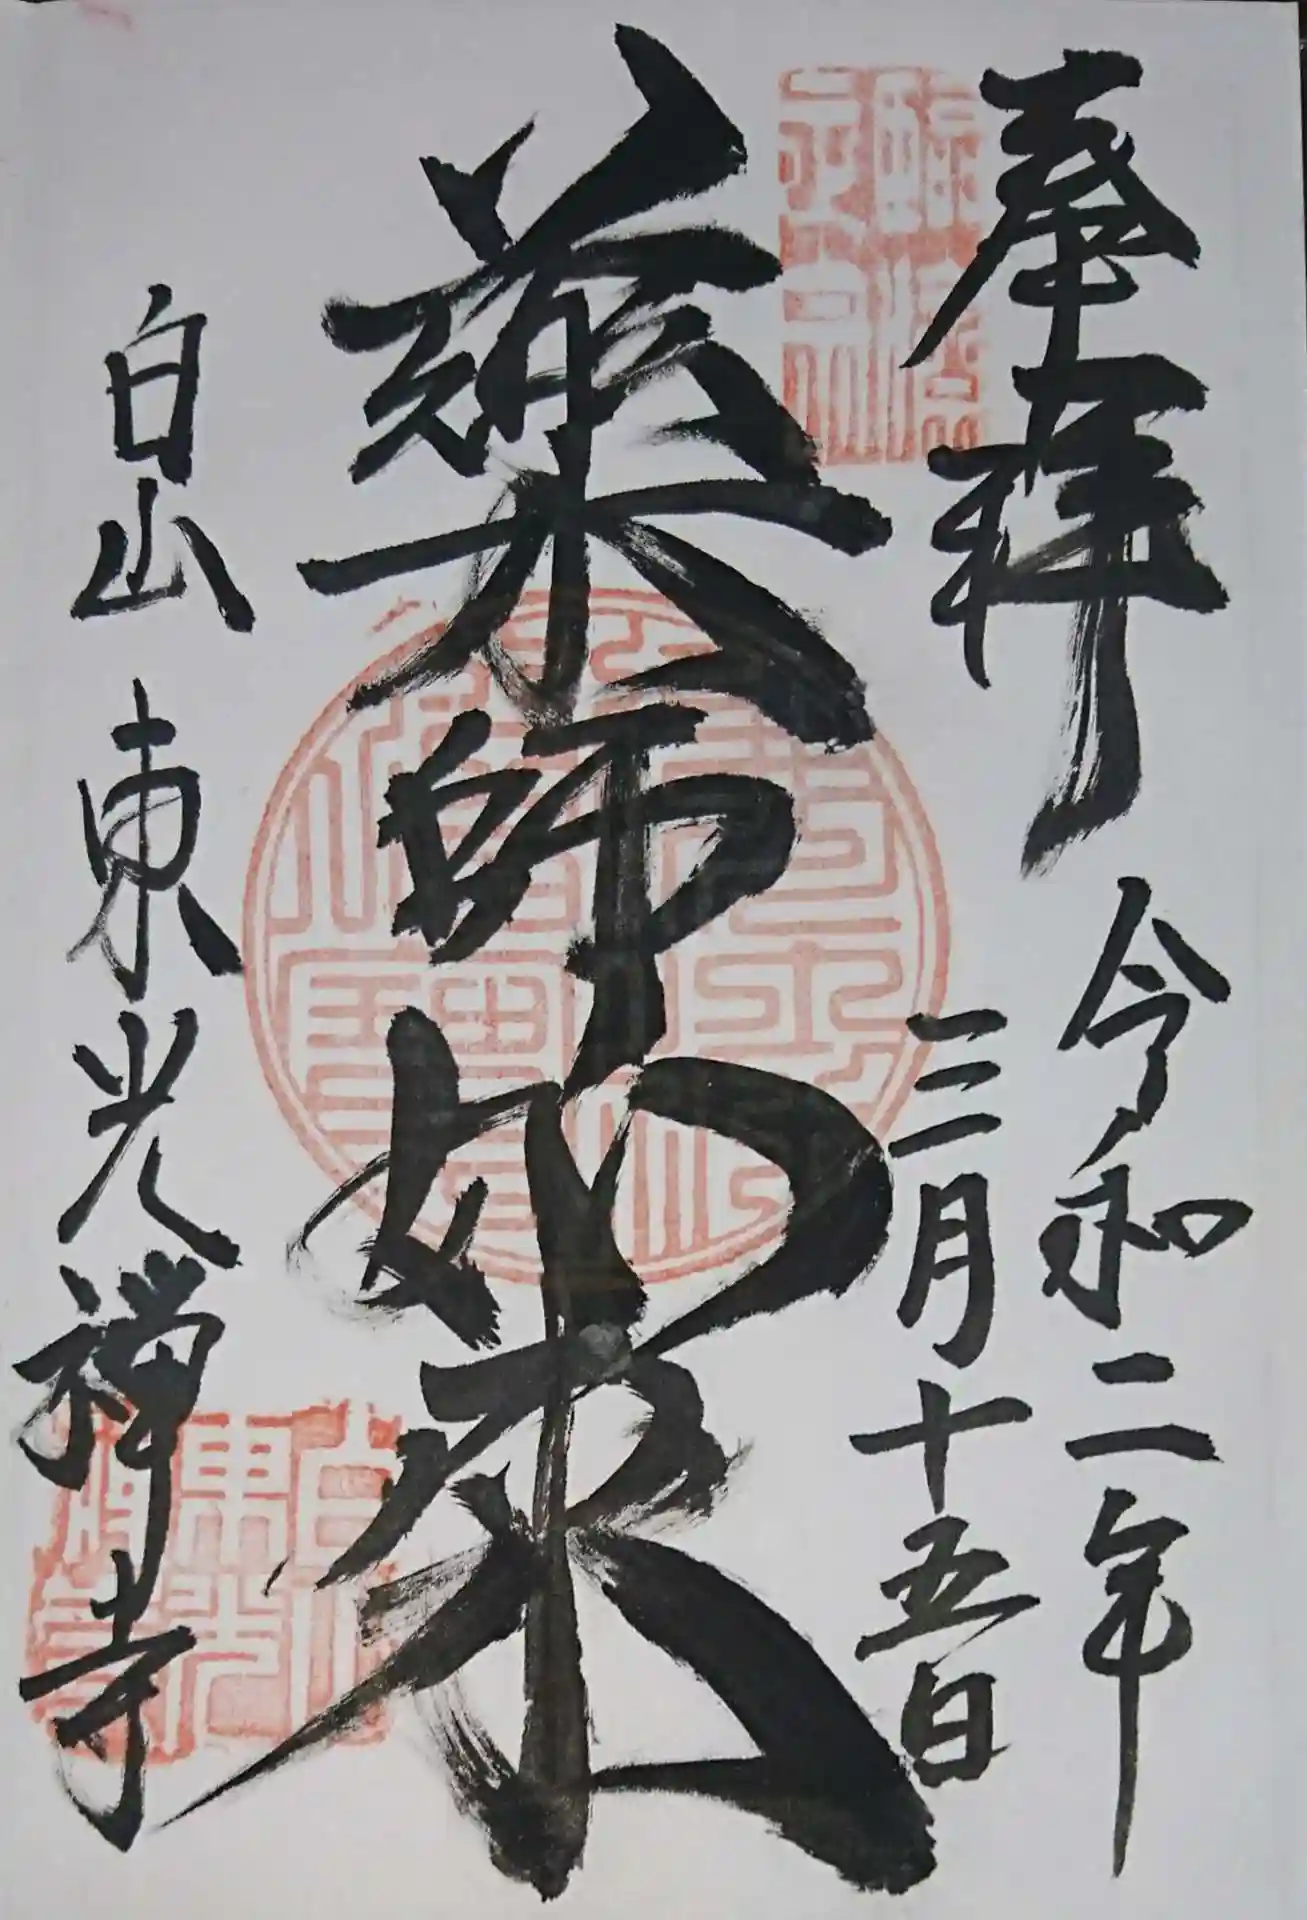 奉拝
令和二年
三月十五日
薬師如来
白山
東光禅寺